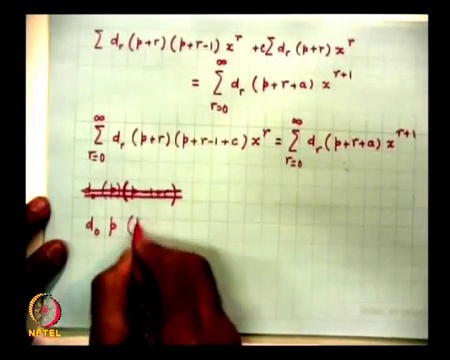 Σ d_r (p+r)(p+r-1) x^r + c Σ d_r (p+r) x^r
= Σ_{r=0}^{∞} d_r (p+r+a) x^{r+1}
Σ_{r=0}^{∞} d_r (p+r)(p+r-1+c) x^r = Σ_{r=0}^{∞} d_r (p+r+a) x^{r+1}
d_0 p (
NPTEL